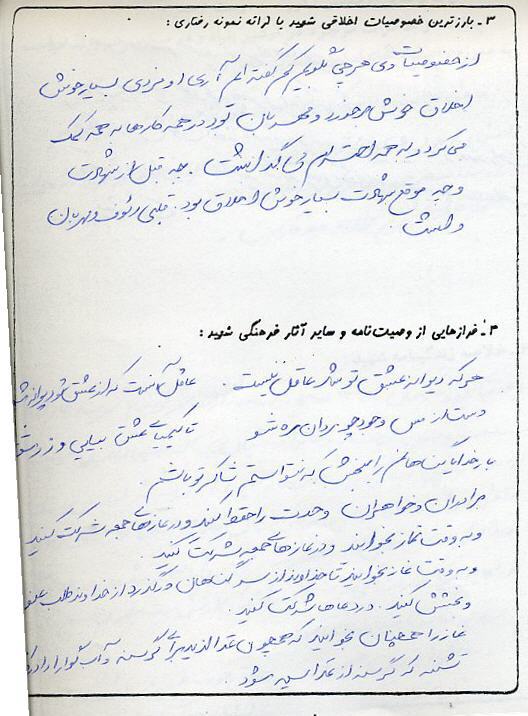 ۳ـ بارزترین خصوصیات اخلاقی شهید با ارائه نمونه رفتاری :
از خصوصیات وی هر چی بگویم کم گفته ام آری او مردی بسیار خوش
اخلاق خوش برخورد و مهربان بود در همه کارها به همه کمک
می کرد و به همه احترام می گذاشت . چه قبل از شهادت
و چه موقع شهادت بسیار خوش اخلاق بود . قلبی رئوف و مهربان
داشت .
۴ـ فرازهایی از وصیت‌نامه و سایر آثار فرهنگی شهید :
هر که دیوانه عشق تو نشد عاقل نیست . عاقل آنست که از عشق تو دیوانه
دست از مس وجود چو مردان ره بشو تا کیمیای عشق بیابی و زر شو
بار خدایا گناهانم را ببخش که نتوانستم شاکر تو باشم .
برادران و خواهران وحدت را حفظ کنید و در نمازهای جمعه شرکت کنید
و به وقت نماز بخوانید و در نمازهای جمعه شرکت کنید .
و به وقت نماز بخوانید تا خداوند از سر گناهان درگذرد از خداوند طلب عفو
و بخشش کنید . در دعاها شرکت کنید .
نماز را همچنان بخوانید که همچون غذا لذیذ برای گرسنه و آب گوارا
تشنه که گرسنه از غذا سیر شود .